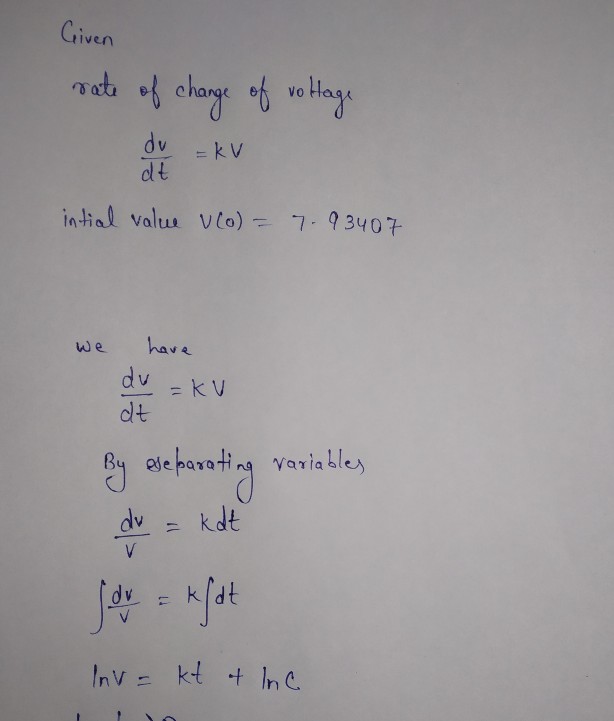 Given
rate of change of voltage
dv/dt = kV
intial value V(0) = 7.93407
we have
dv/dt = kV
By seperating variables
dv/v = kdt
∫dv/v = k∫dt
lnv = kt + lnC